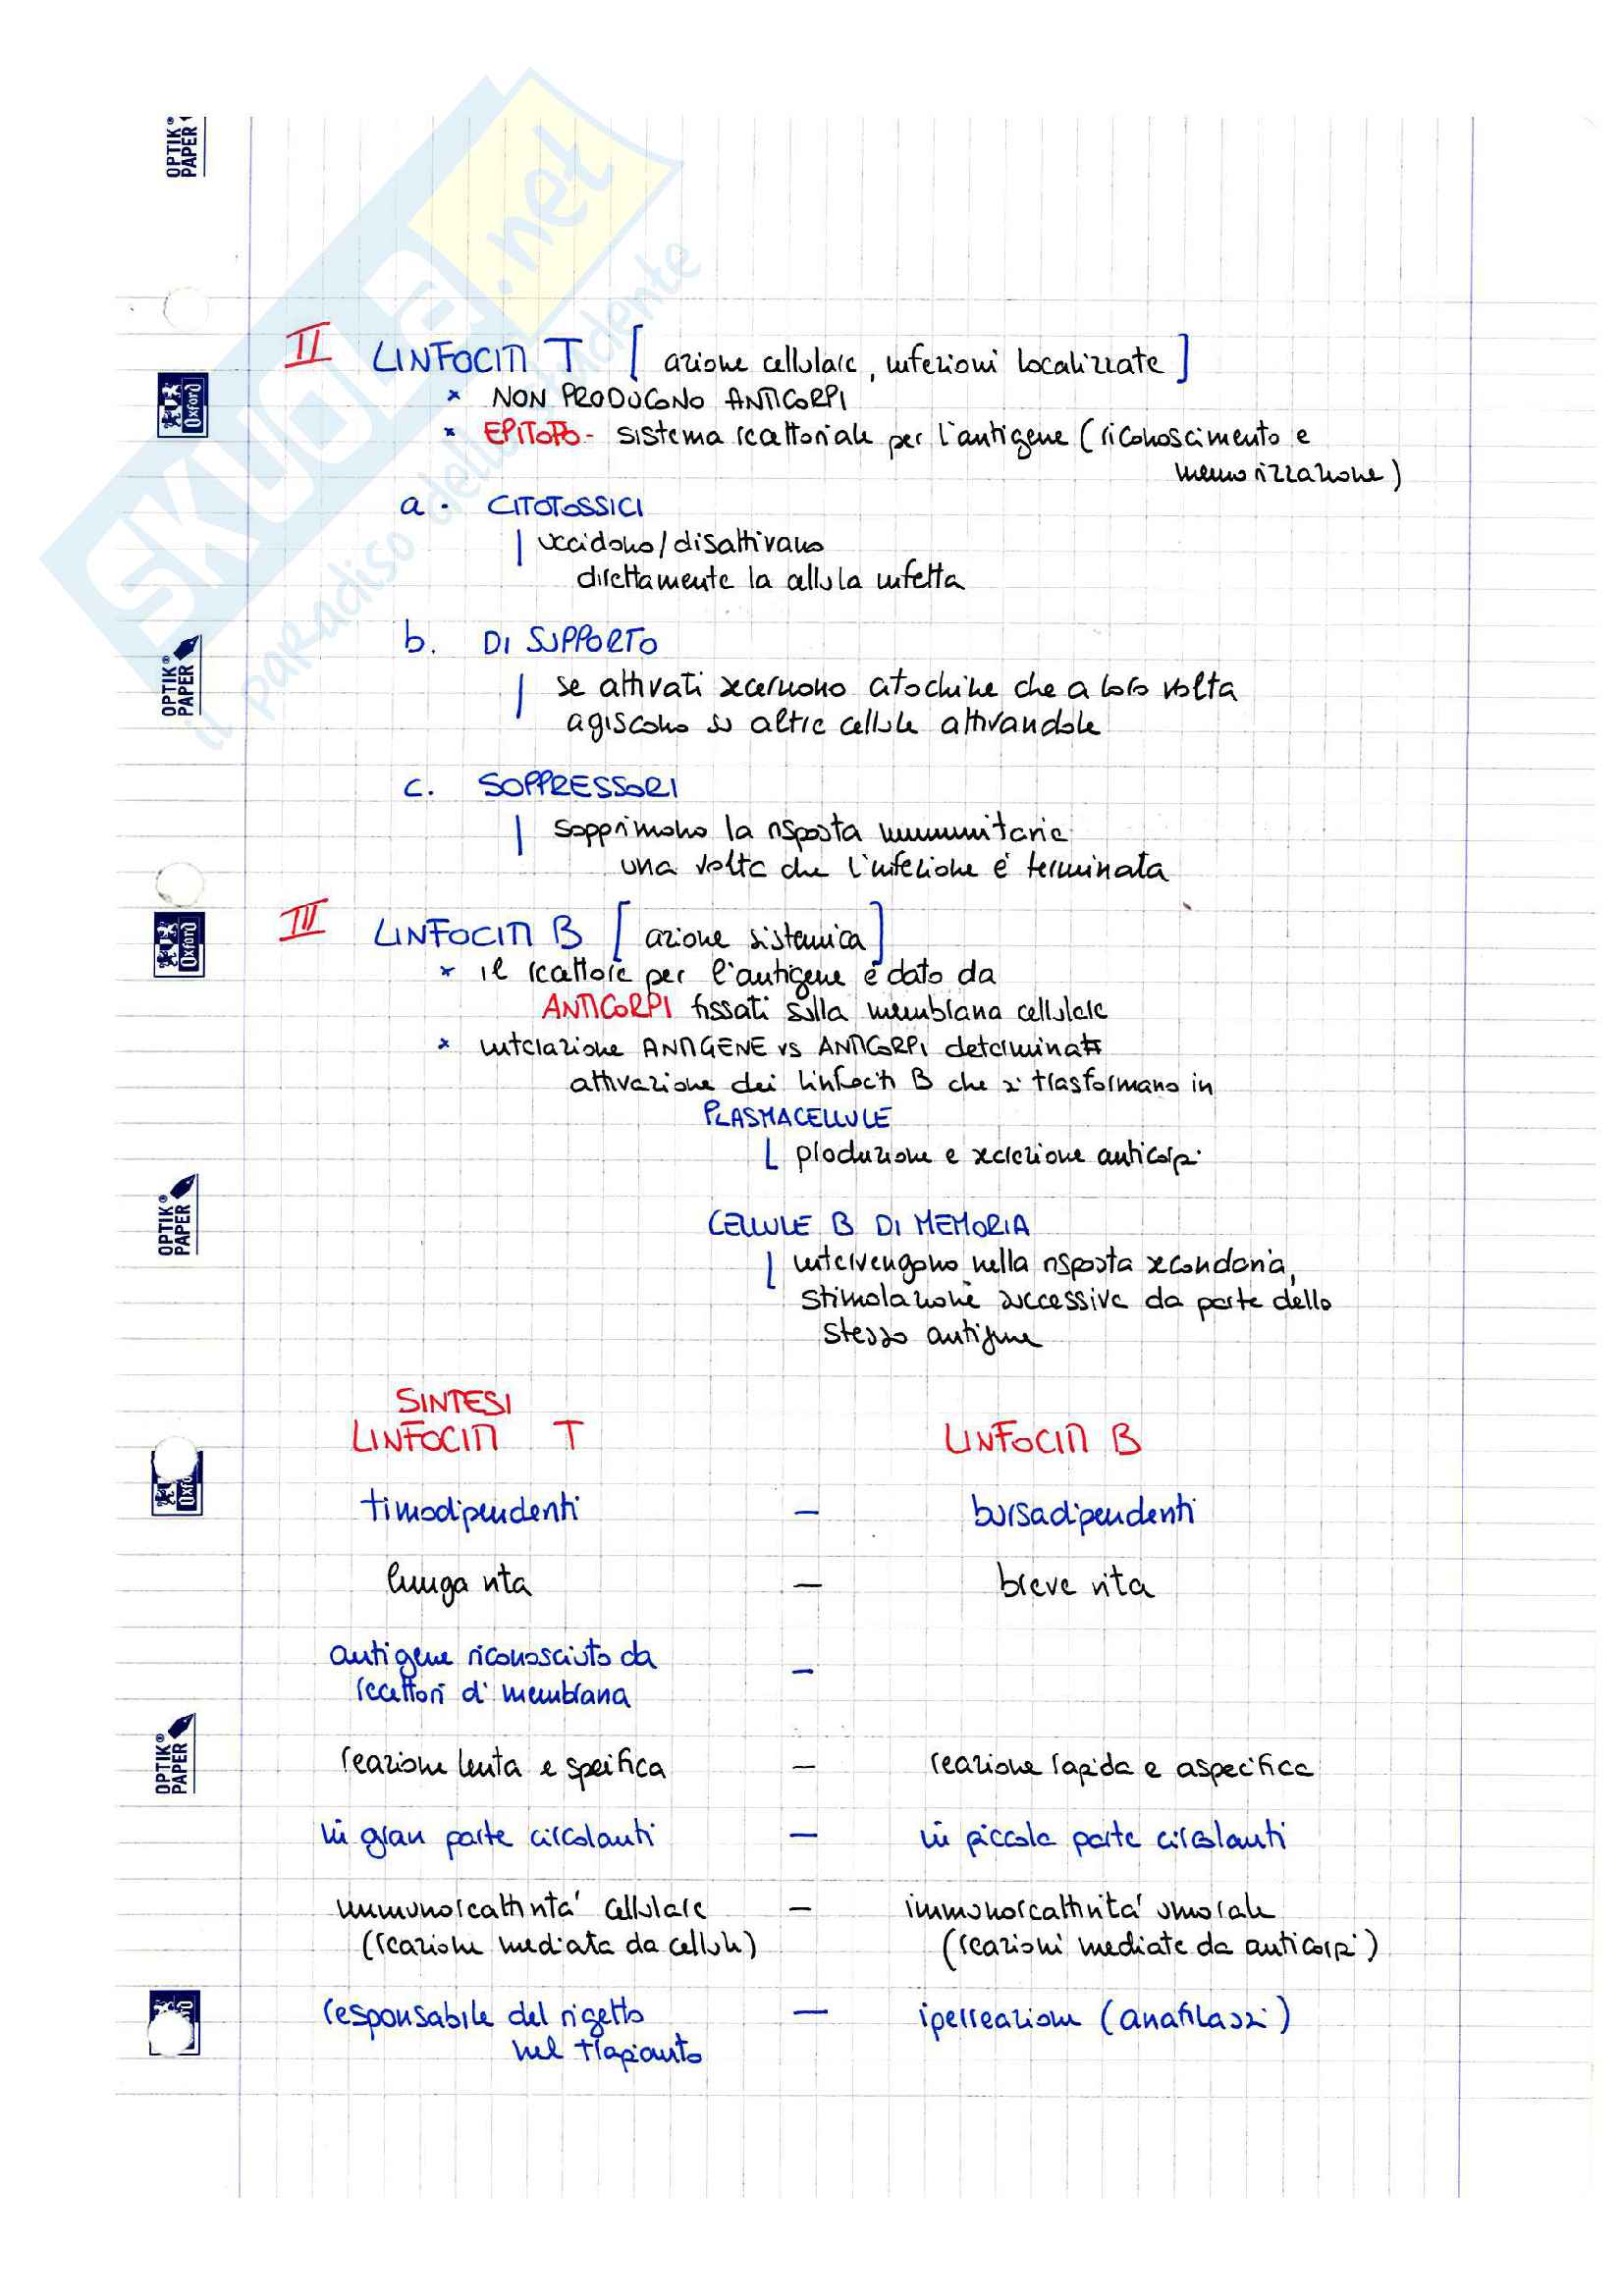 OPTIK® PAPER
SKUOLA.net
il paradiso dello studente
II LINFOCITI T [azione cellulare, infezioni localizzate]
Oxford
* NON PRODUCONO ANTICORPI
* EPITOPO - sistema recettoriale per l'antigene (riconoscimento e
memorizzazione)
a. CITOTOSSICI
uccidono/disattivano
direttamente la cellula infetta
b. DI SUPPORTO
OPTIK® PAPER
se attivati secernono citochine che a loro volta
agiscono su altre cellule attivandole
c. SOPPRESSORI
sopprimono la risposta immunitaria
una volta che l'infezione è terminata
III LINFOCITI B [azione sistemica]
Oxford
* il recettore per l'antigene è dato da
ANTICORPI fissati sulla membrana cellulare
* interazione ANTIGENE vs ANTICORPI determinati
attivazione dei linfociti B che si trasformano in
PLASMACELLULE
produzione e secrezione anticorpi
OPTIK® PAPER
CELLULE B DI MEMORIA
intervengono nella risposta secondaria,
stimolazione successiva da parte dello
stesso antigene
SINTESI
LINFOCITI T LINFOCITI B
Oxford
timodipendenti - bursadipendenti
lunga vita - breve vita
antigene riconosciuto da -
recettori di membrana
OPTIK® PAPER
reazione lenta e specifica - reazione rapida e aspecifica
in gran parte circolanti - in piccola parte circolanti
immunoreattività cellulare - immunoreattività umorale
(reazioni mediata da cellule) (reazioni mediate da anticorpi)
responsabile del rigetto - iperreazione (anafilassi)
nel trapianto